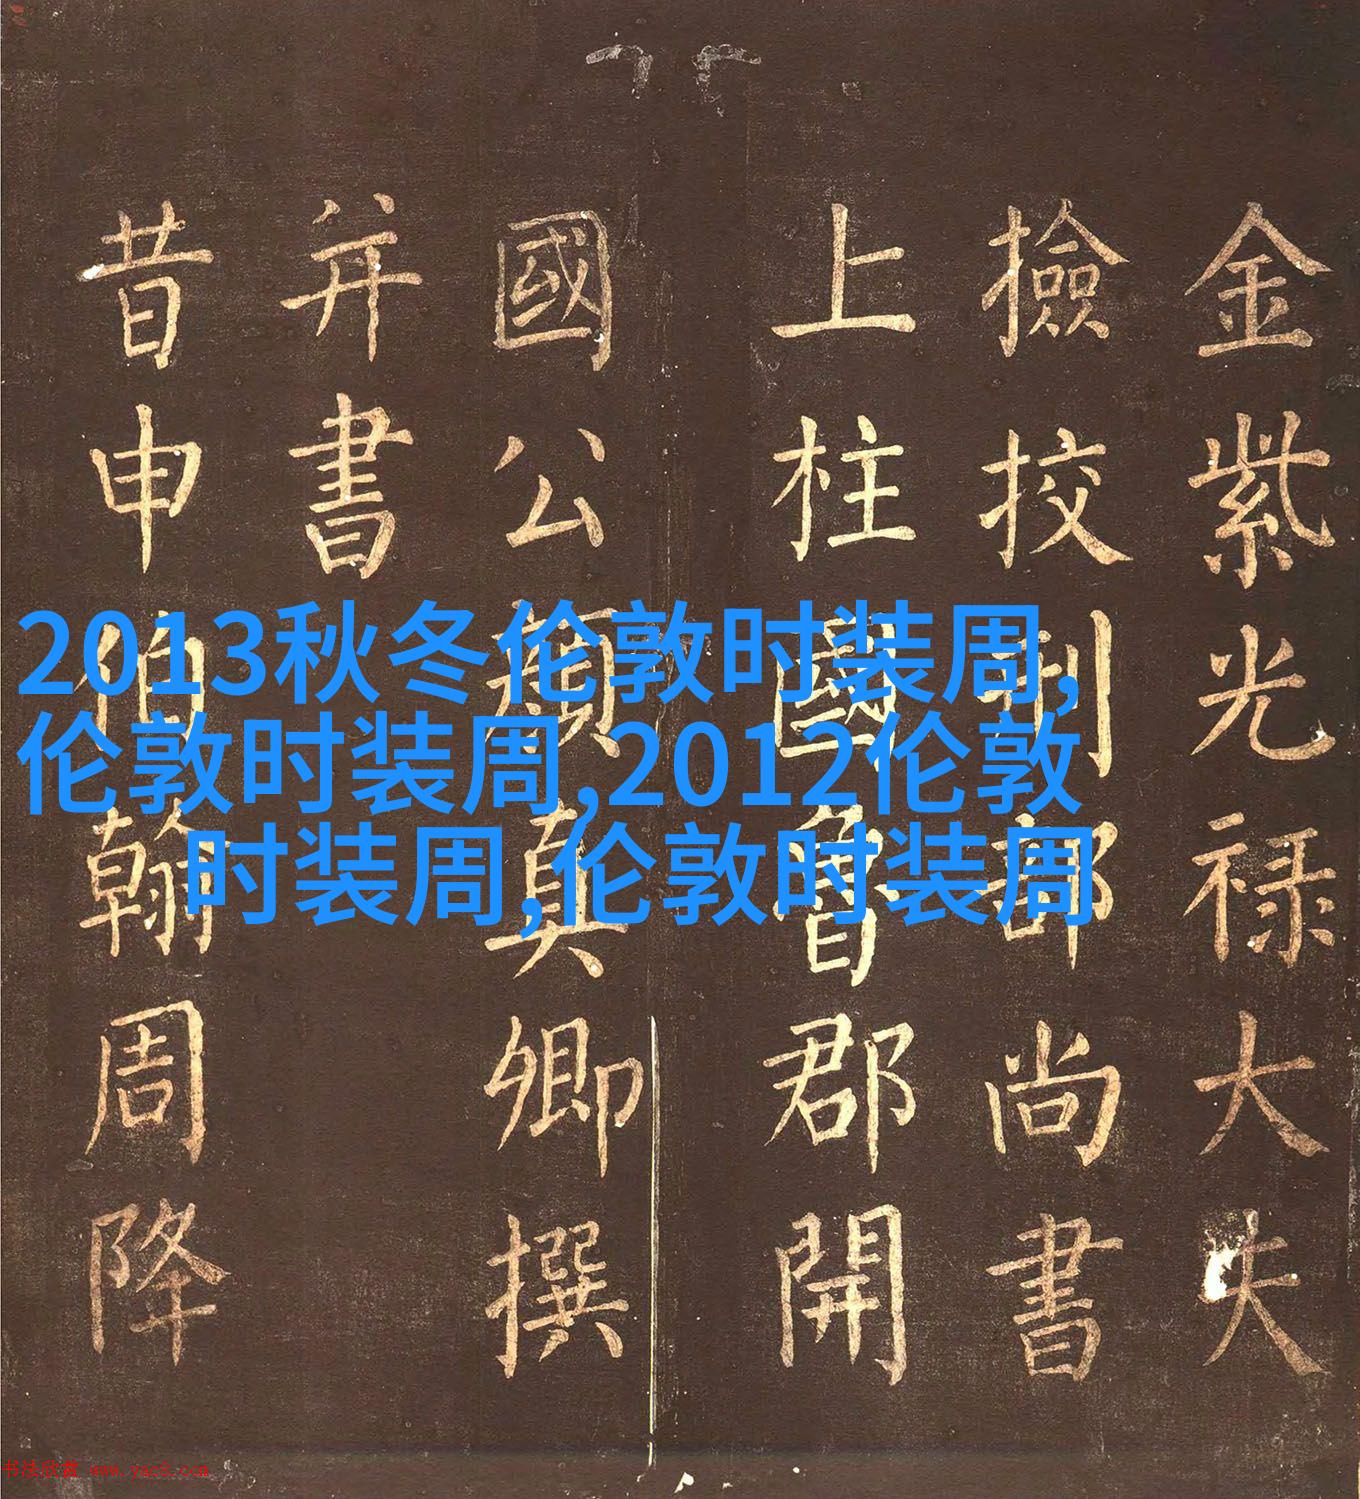 金紫光禄大夫
撿挍刑部尚書
上柱國魯郡開
國公顏真卿撰
并書
昔申伯翰周降
2013秋冬伦敦时装周,
伦敦时装周,2012伦敦
时装周,伦敦时装周
书法欣赏 www.yac8.com